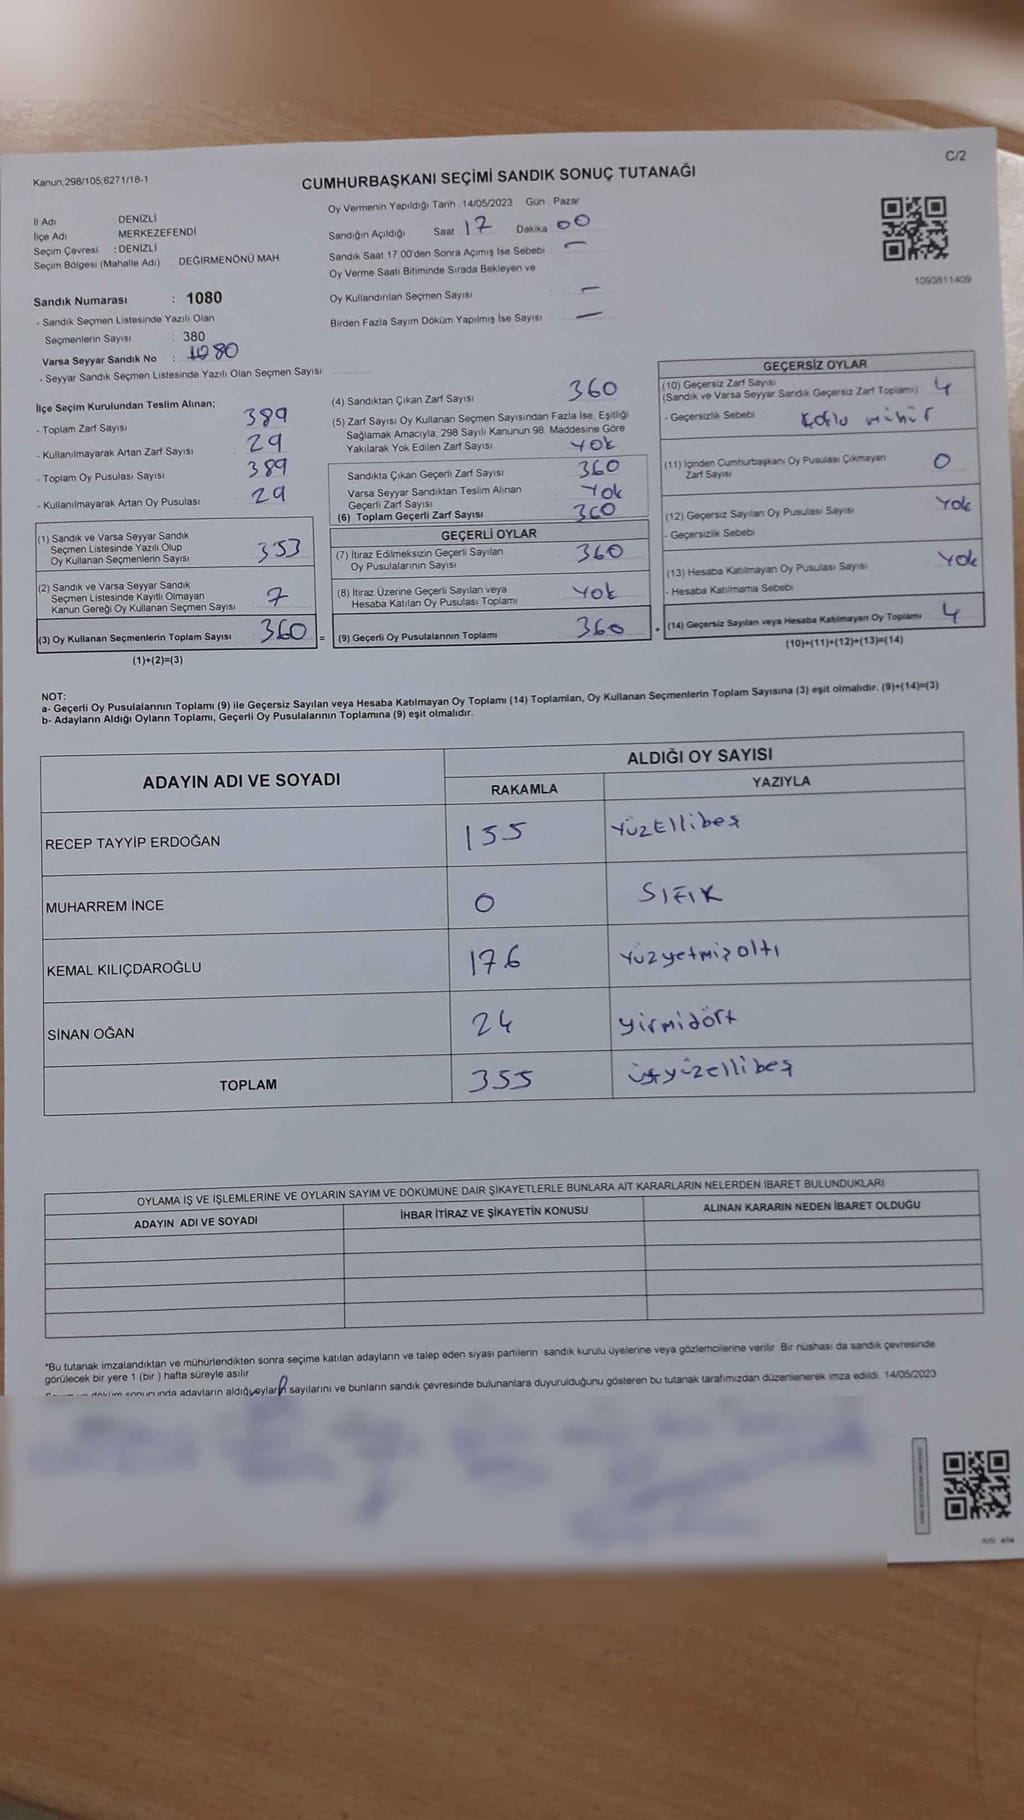 C/2
Kanun,298/105,6271/18-1
CUMHURBAŞKANI SEÇİMİ SANDIK SONUÇ TUTANAĞI
İl Adı DENİZLİ
İlçe Adı MERKEZEFENDİ
Seçim Çevresi : DENİZLİ
Seçim Bölgesi (Mahalle Adı) DEĞİRMENÖNÜ MAH
Sandık Numarası : 1080
- Sandık Seçmen Listesinde Yazılı Olan
Seçmenlerin Sayısı : 380
Varsa Seyyar Sandık No : 1080
- Seyyar Sandık Seçmen Listesinde Yazılı Olan Seçmen Sayısı
Oy Vermenin Yapıldığı Tarih 14/05/2023 Gün Pazar
Sandığın Açıldığı Saat 17 Dakika 00
Sandık Saat 17.00'den Sonra Açımış İse Sebebi —
Oy Verme Saati Bitiminde Sırada Bekleyen ve
Oy Kullandırılan Seçmen Sayısı —
Birden Fazla Sayım Döküm Yapılmış İse Sayısı —
1093811409
İlçe Seçim Kurulundan Teslim Alınan;
- Toplam Zarf Sayısı 389
- Kullanılmayarak Artan Zarf Sayısı 29
- Toplam Oy Pusulası Sayısı 389
- Kullanılmayarak Artan Oy Pusulası 29
(1) Sandık ve Varsa Seyyar Sandık
Seçmen Listesinde Yazılı Olup
Oy Kullanan Seçmenlerin Sayısı 353
(2) Sandık ve Varsa Seyyar Sandık
Seçmen Listesinde Kayıtlı Olmayan
Kanun Gereği Oy Kullanan Seçmen Sayısı 7
(3) Oy Kullanan Seçmenlerin Toplam Sayısı 360 =
(1)+(2)=(3)
(4) Sandıktan Çıkan Zarf Sayısı 360
(5) Zarf Sayısı Oy Kullanan Seçmen Sayısından Fazla İse, Eşitliği
Sağlamak Amacıyla, 298 Sayılı Kanunun 98. Maddesine Göre
Yakılarak Yok Edilen Zarf Sayısı YOK
Sandıkta Çıkan Geçerli Zarf Sayısı 360
Varsa Seyyar Sandıktan Teslim Alınan
Geçerli Zarf Sayısı Yok
(6) Toplam Geçerli Zarf Sayısı 360
GEÇERLİ OYLAR
(7) İtiraz Edilmeksizin Geçerli Sayılan
Oy Pusulalarının Sayısı 360
(8) İtiraz Üzerine Geçerli Sayılan veya
Hesaba Katılan Oy Pusulası Toplamı YOK
(9) Geçerli Oy Pusulalarının Toplamı 360 +
GEÇERSİZ OYLAR
(10) Geçersiz Zarf Sayısı
(Sandık ve Varsa Seyyar Sandık Geçersiz Zarf Toplamı) 4
- Geçersizlik Sebebi mühür
(11) İçinden Cumhurbaşkanı Oy Pusulası Çıkmayan
Zarf Sayısı 0
(12) Geçersiz Sayılan Oy Pusulası Sayısı Yok
- Geçersizlik Sebebi
(13) Hesaba Katılmayan Oy Pusulası Sayısı Yok
- Hesaba Katılmama Sebebi
(14) Geçersiz Sayılan veya Hesaba Katılmayan Oy Toplamı 4
(10)+(11)+(12)+(13)=(14)
NOT:
a- Geçerli Oy Pusulalarının Toplamı (9) ile Geçersiz Sayılan veya Hesaba Katılmayan Oy Toplamı (14) Toplamları, Oy Kullanan Seçmenlerin Toplam Sayısına (3) eşit olmalıdır. (9)+(14)=(3)
b- Adayların Aldığı Oyların Toplamı, Geçerli Oy Pusulalarının Toplamına (9) eşit olmalıdır.
ADAYIN ADI VE SOYADI
ALDIĞI OY SAYISI
RAKAMLA YAZIYLA
RECEP TAYYİP ERDOĞAN 155 YüzEllibeş
MUHARREM İNCE 0 SIFIR
KEMAL KILIÇDAROĞLU 176 Yüzyetmişaltı
SİNAN OĞAN 24 yirmidört
TOPLAM 355 üçyüzellibeş
OYLAMA İŞ VE İŞLEMLERİNE VE OYLARIN SAYIM VE DÖKÜMÜNE DAİR ŞİKAYETLERLE BUNLARA AİT KARARLARIN NELERDEN İBARET BULUNDUKLARI
ADAYIN ADI VE SOYADI İHBAR İTİRAZ VE ŞİKAYETİN KONUSU ALINAN KARARIN NEDEN İBARET OLDUĞU
*Bu tutanak imzalandıktan ve mühürlendikten sonra seçime katılan adayların ve talep eden siyasi partilerin sandık kurulu üyelerine veya gözlemcilerine verilir. Bir nüshası da sandık çevresinde
görülecek bir yere 1 (bir) hafta süreyle asılır
döküm sonucunda adayların aldığı oyların sayılarını ve bunların sandık çevresinde bulunanlara duyurulduğunu gösteren bu tutanak tarafımızdan düzenlenerek imza edildi. 14/05/2023